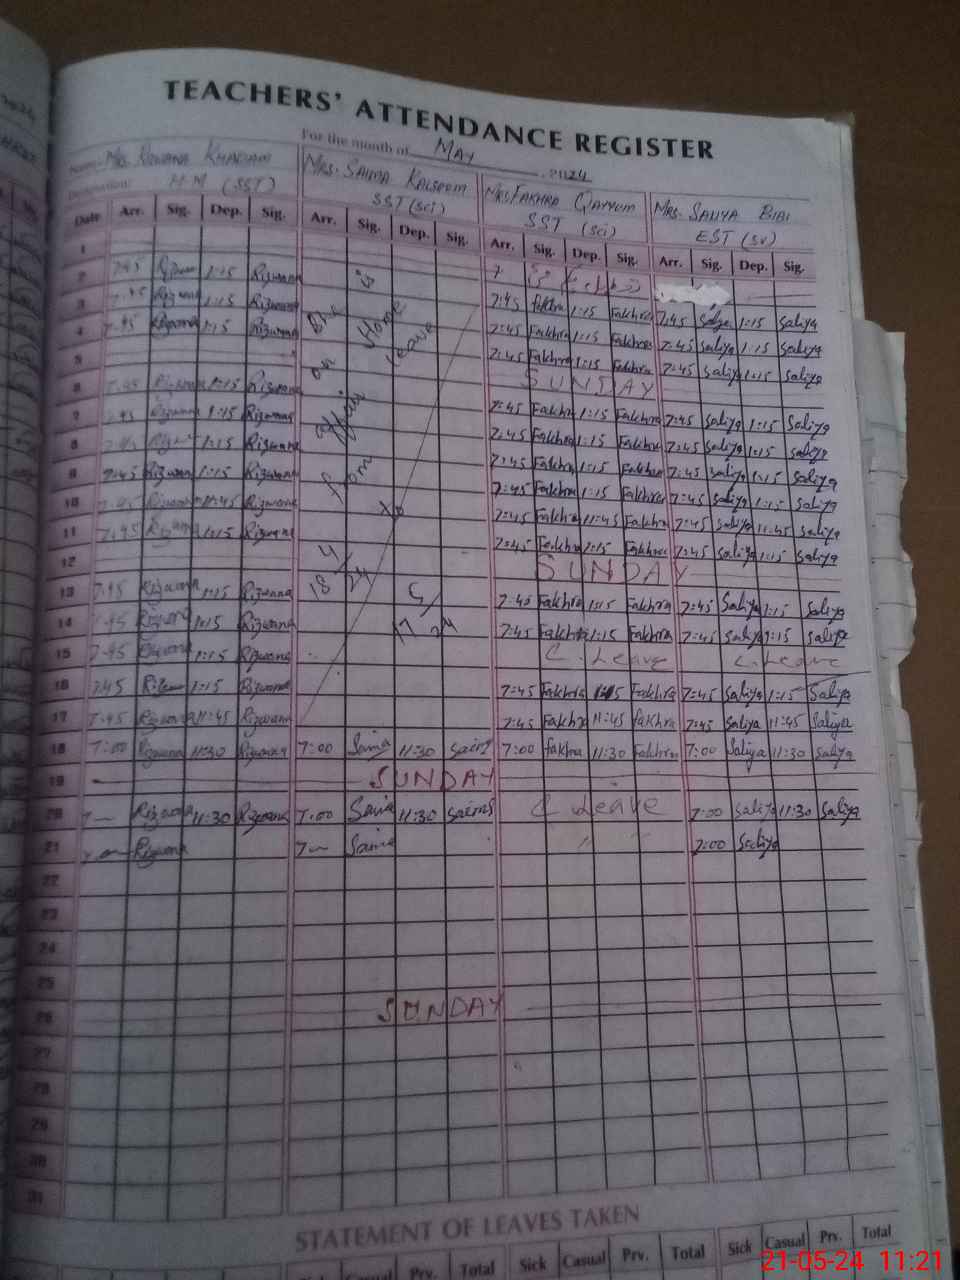 TEACHERS' ATTENDANCE REGISTER
For the month of MAY 2024
Name: Mrs. Rizwana Khanam Mrs. Saima Kalsoom Mrs Fakhra Qayyum Mrs. Saliya Bibi
Designation: H.M (SST) SST (Sci) SST (Sci) EST (SV)
Date Arr. Sig. Dep. Sig. Arr. Sig. Dep. Sig. Arr. Sig. Dep. Sig. Arr. Sig. Dep. Sig.
1
2 7:45 Rizwana 1:15 Rizwana is
3 7:45 Rizwana 1:15 Rizwana 7:45 Fakhra 1:15 Fakhra 7:45 Saliya 1:15 Saliya
4 7:45 Rizwana 1:15 Rizwana on Home leave 7:45 Fakhra 1:15 Fakhra 7:45 Saliya 1:15 Saliya
5 7:45 Fakhra 1:15 Fakhra 7:45 Saliya 1:15 Saliya
SUNDAY
6 7:45 Rizwana 1:15 Rizwana
7 7:45 Rizwana 1:15 Rizwana 7:45 Fakhra 1:15 Fakhra 7:45 Saliya 1:15 Saliya
8 7:45 Rizwana 1:15 Rizwana 7:45 Fakhra 1:15 Fakhra 7:45 Saliya 1:15 Saliya
9 7:45 Rizwana 1:15 Rizwana from 7:45 Fakhra 1:15 Fakhra 7:45 Saliya 1:15 Saliya
10 7:45 Rizwana 11:45 Rizwana 7:45 Fakhra 1:15 Fakhra 7:45 Saliya 1:15 Saliya
11 7:45 Rizwana 1:15 Rizwana to 7:45 Fakhra 11:45 Fakhra 7:45 Saliya 11:45 Saliya
7:45 Fakhra 1:15 Fakhra 7:45 Saliya 1:15 Saliya
12 18 4/24 SUNDAY
13 7:45 Rizwana 1:15 Rizwana 7:45 Fakhra 1:15 Fakhra 7:45 Saliya 1:15 Saliya
14 7:45 Rizwana 1:15 Rizwana 17 5/24 7:45 Fakhra 1:15 Fakhra 7:45 Saliya 1:15 Saliya
15 7:45 Rizwana 1:15 Rizwana C. Leave C. Leave
16 7:45 Rizwana 1:15 Rizwana 7:45 Fakhra 1:15 Fakhra 7:45 Saliya 1:15 Saliya
17 7:45 Rizwana 11:45 Rizwana 7:45 Fakhra 11:45 Fakhra 7:45 Saliya 11:45 Saliya
18 7:00 Rizwana 11:30 Rizwana 7:00 Saima 11:30 Saima 7:00 Fakhra 11:30 Fakhra 7:00 Saliya 11:30 Saliya
19 SUNDAY
20 7 Rizwana 11:30 Rizwana 7:00 Saima 11:30 Saima C Leave 7:00 Saliya 11:30 Saliya
21 7 Rizwana 7 Saima 7:00 Saliya
22
23
24
25
26 SUNDAY
27
28
29
30
31
STATEMENT OF LEAVES TAKEN
Sick Casual Prv. Total Sick Casual Prv. Total Sick Casual Prv. Total
21-05-24 11:21